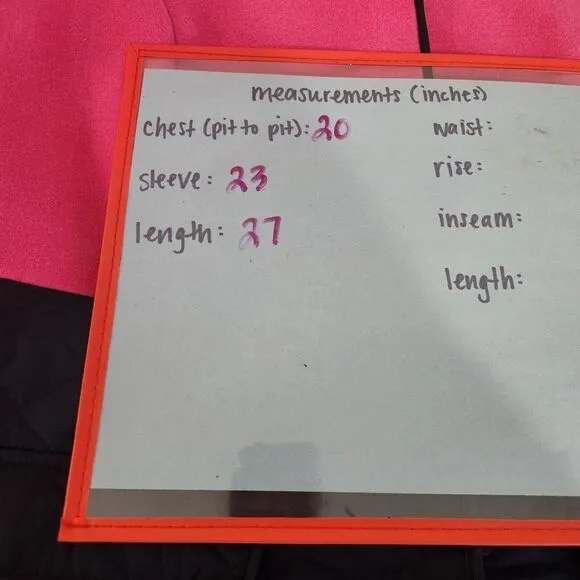 measurements (inches)
chest (pit to pit): 20
sleeve: 23
length: 27
waist:
rise:
inseam:
length: